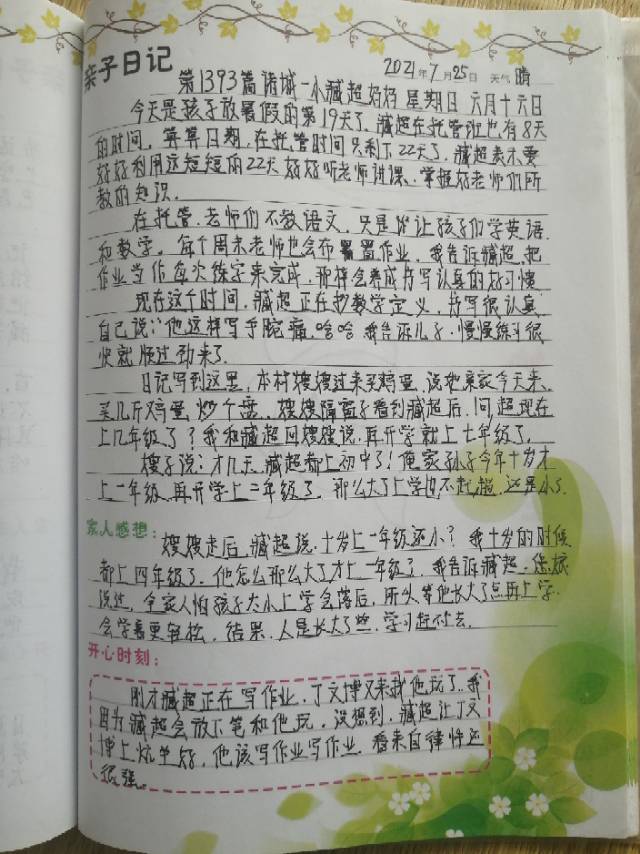 亲子日记
2021年7月25日 天气 晴
第1393篇 诸城一小臧超好好 星期日 六月十六日
今天是孩子放暑假的第19天了。臧超在托管班也有8天
的时间。算算日期,在托管时间只剩下22天了。臧超表示要
好好利用这短短的22天好好听老师讲课、掌握好老师们所
教的知识。
在托管,老师们不教语文,只是让孩子们学英语
和数学。每个周末老师也会布置作业,我告诉臧超,把
作业当作每次练字来完成,那样会养成书写认真的好习惯
现在这个时间,臧超正在抄数学定义,书写很认真
自己说:他这样写手腕痛,哈哈,我告诉儿子,慢慢练习很
快就顺过劲来了。
日记写到这里,本村嫂嫂过来买鸡蛋,说她亲家今天来,
买几斤鸡蛋,炒个盘。嫂嫂隔窗子看到臧超后,问超现在
上几年级了?我和臧超回嫂嫂说,再开学就上七年级了。
嫂子说:才几天,臧超都上初中了!俺家孙子今年十岁才
上一年级,再开学上二年级了。那么大了上学也不赶趟,还是小。
家人感想:
嫂嫂走后,臧超说:十岁上一年级还小?我十岁的时候
都上四年级了。他怎么那么大了才上一年级了。我告诉臧超,
说过,全家人怕孩子太小上学会落后,所以等他长大了点再上学
会学着更轻松,结果,人是长大了些,学习赶不去。
开心时刻:
刚才臧超正在写作业,丁文博又来找他玩了。我
因为臧超会放下笔和他玩,没想到,臧超让丁文
博上炕坐好,他该写作业写作业,看来自律性还
很强。